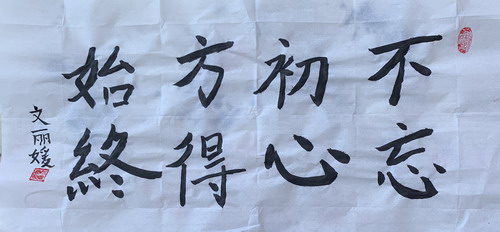 不忘
初心
方得
始終
文丽媛